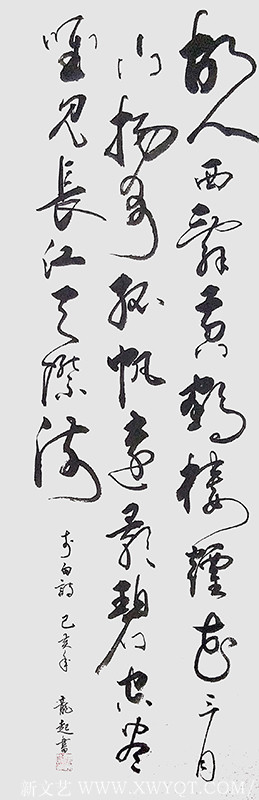 故人西辭黃鶴樓煙花三月
下揚州孤帆遠影碧空盡
唯見長江天際流
李白詩 己亥年 龍起書
新文艺 WWW.XWYQT.COM